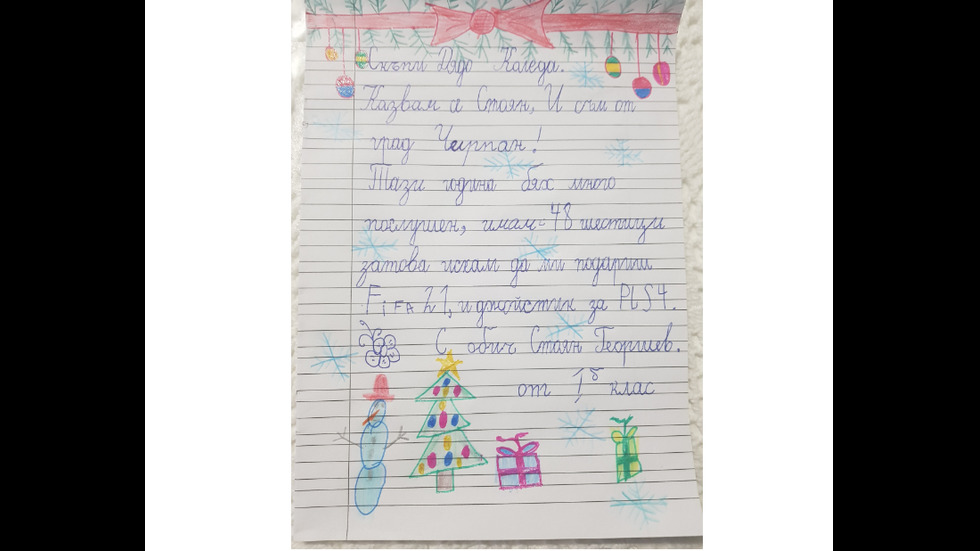 Скъпи Дядо Коледа.
Казвам се Стоян, И съм от
град Чирпан!
Тази година бях много
послушен, имам 48 шестици
затова искам да ми подариш
FiFA 21, и джойстик за PLS4.
С обич Стоян Георгиев.
от 1б клас